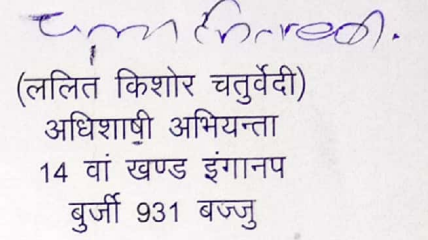 (ललित किशोर चतुर्वेदी)
अधिशाषी अभियन्ता
14 वां खण्ड इंगानप
बुर्जी 931 बज्जु